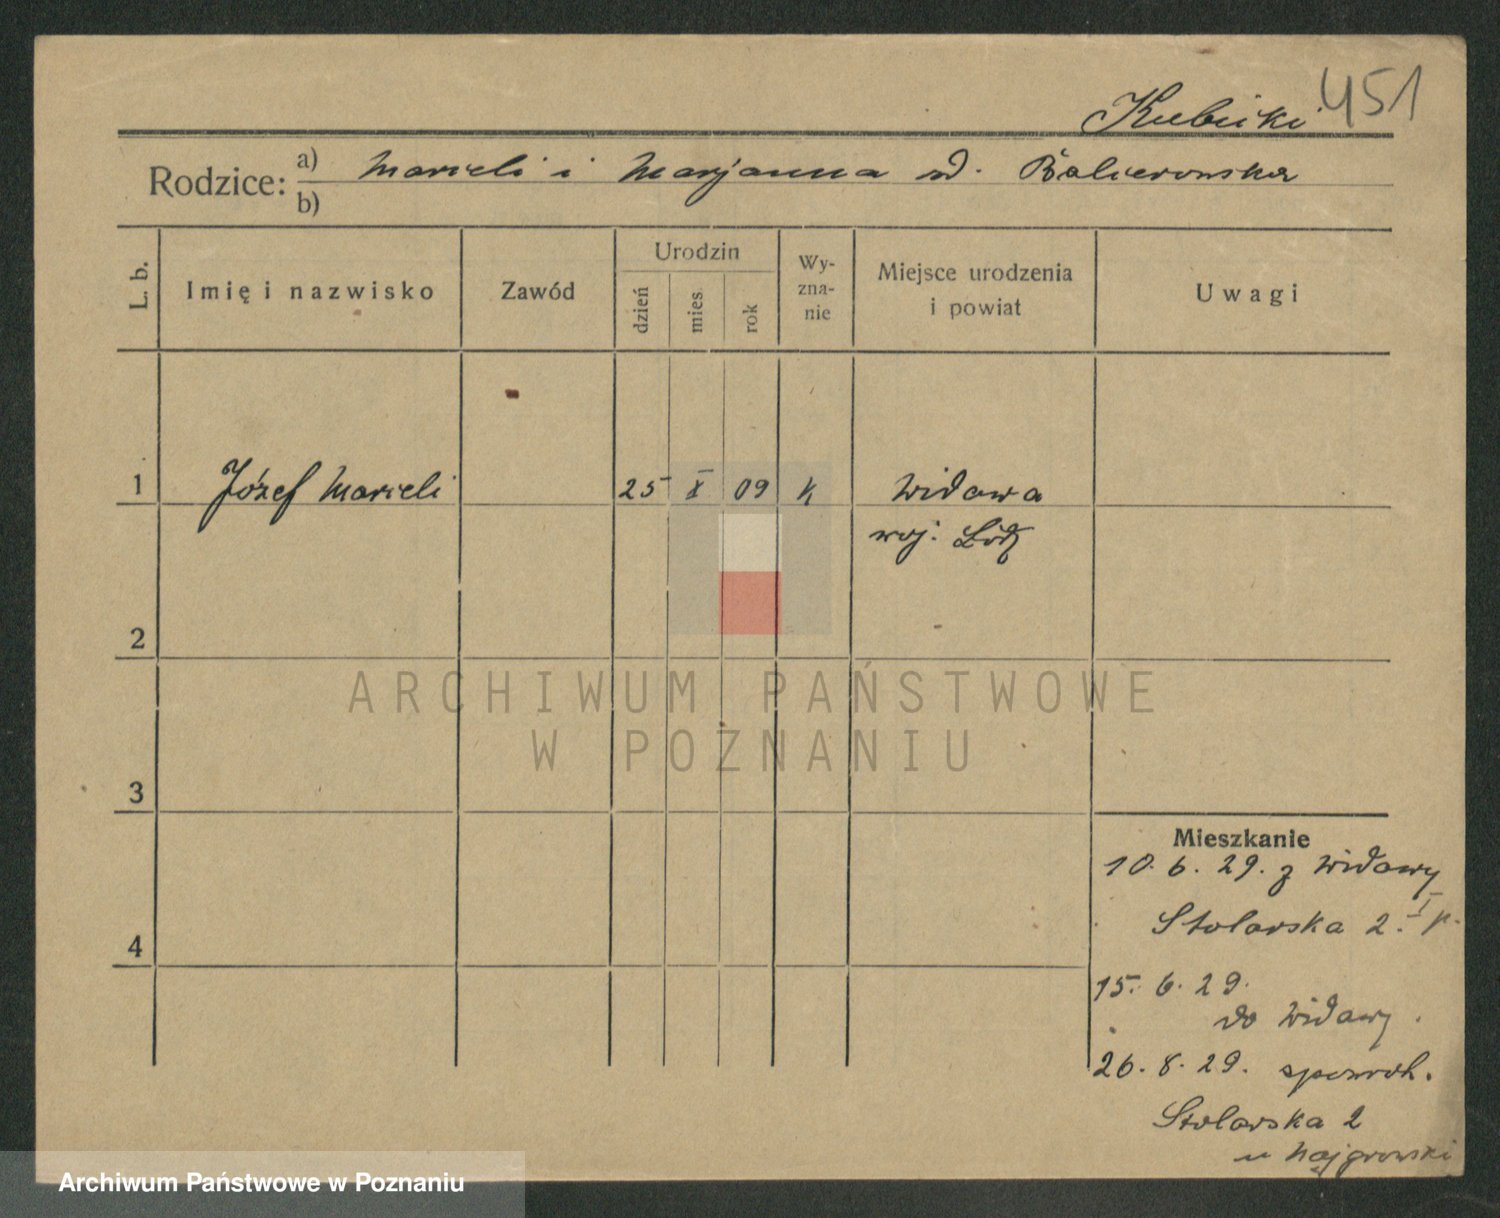 Kubicki 451
Rodzice: a) Marceli i Marjanna
b)
L. b.
Imię i nazwisko
Zawód
Urodzin
dzień
mies
rok
Wy-
zna-
nie
Miejsce urodzenia
i powiat
Uwagi
1 Józef Marceli 25 X 09 K Widawa
woj. Łódź
2
3
4
Mieszkanie
10. 6. 29. z Widawy
Stolarska 2. I p.
15. 6. 29.
do Widawy.
26. 8. 29.
Stolarska 2
u
ARCHIWUM PAŃSTWOWE
W POZNANIU
Archiwum Państwowe w Poznaniu